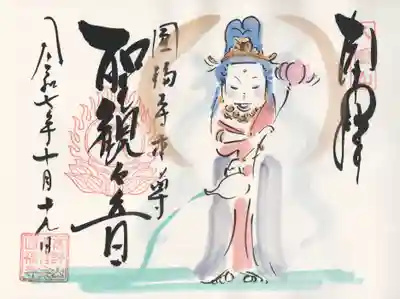 奉拝
圓福寺本尊
聖観世音
令和七年十月十九日